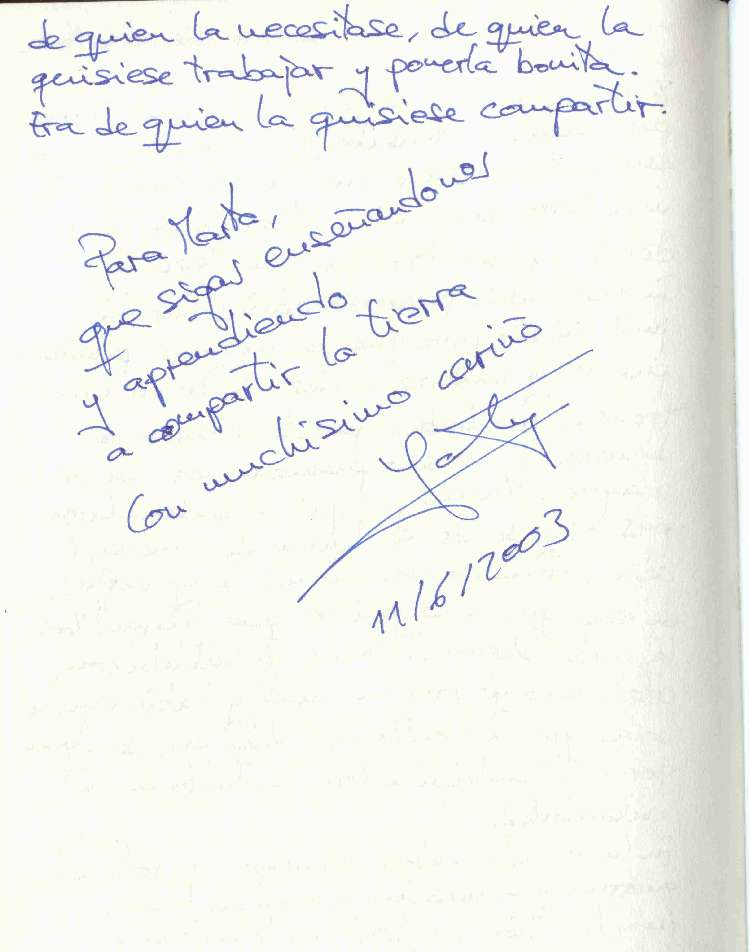 de quien la necesitase, de quien la
quisiese trabajar y ponerla bonita.
Era de quien la quisiese compartir.
Para Marta,
que sigas enseñandonos
y aprendiendo
a compartir la tierra
Con muchisimo cariño
11/6/2003